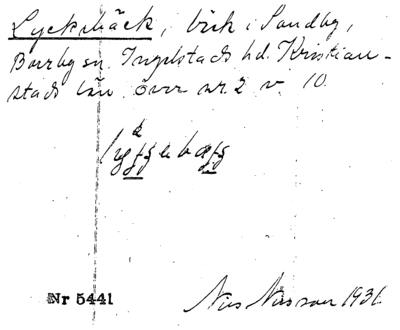 Lyckebäck, bäck i Sandby,
Borrby sn. Ingelstads hd. Kristian-
stads län. över nr. 2 v. 10.
Nr 5441
Nils Nilsson 1931.